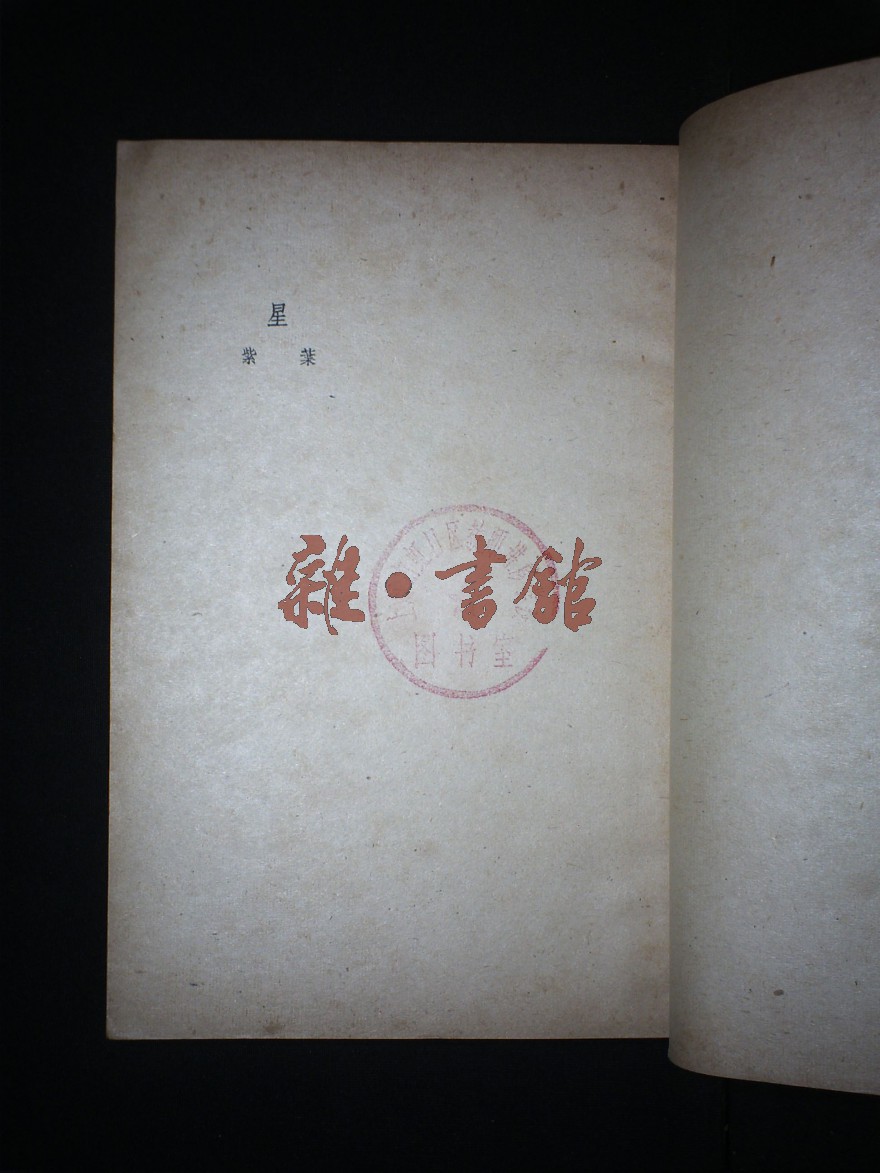 星
葉 紫
雜•書館
图书室